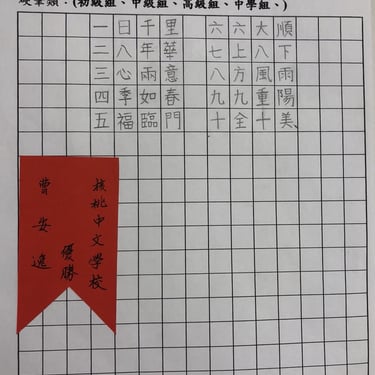 硬筆類：(初級組、中級組、高級組、中學組、)
一日千里 六六大順
二八年華 七上八下
三心兩意 八方風雨
四季如春 九九重陽
五福臨門 十全十美、
核桃中文學校
優勝
曹安逸